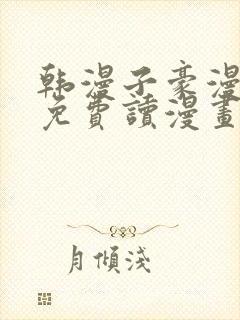 韩漫子豪漫
免費讀漫畫
月傾淺